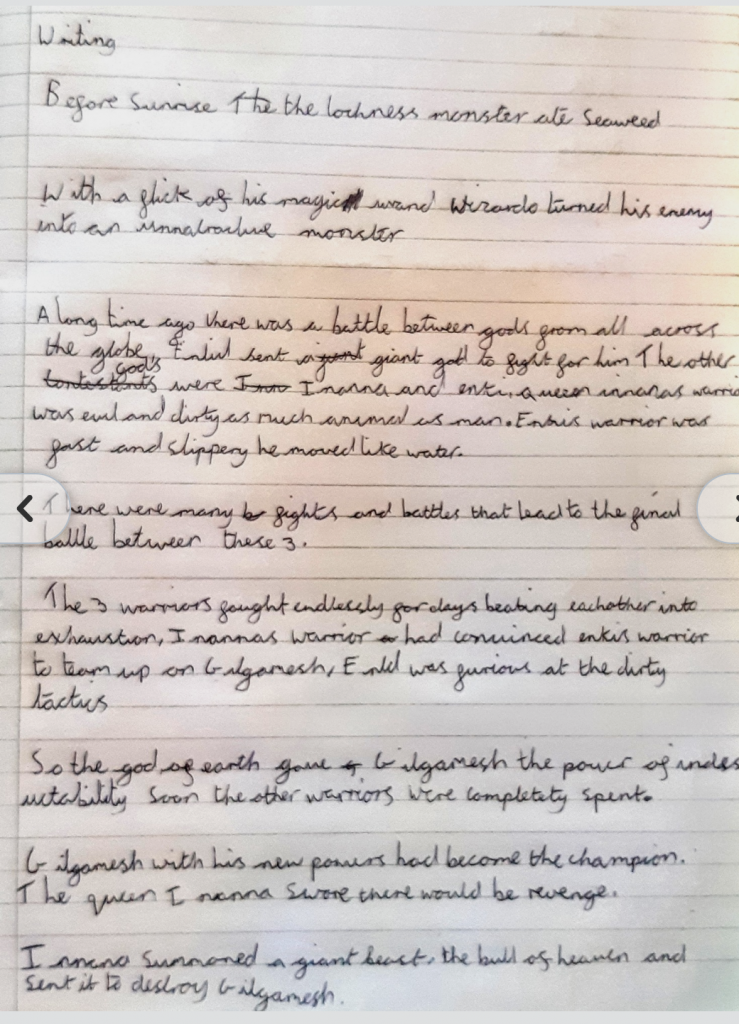 Writing
Before Sunrise The the lochness monster ate Seaweed
With a flick of his magic wand Wizardo turned his enemy
into an unnatractive monster
A long time ago there was a battle between gods from all across
the globe, Enlil sent a giant to fight for him The other
gods
were Inanna and enki, queen innanas warrio
was evil and dirty as much animal as man. Enkis warrior was
fast and slippery he moved like water.
There were many fights and battles that lead to the final
battle between these 3.
The 3 warriors fought endlessly for days beating eachother into
exhaustion, Inannas warrior had convinced enkis warrior
to team up on Gilgamesh, Enlil was furious at the dirty
tactics
So the god of earth gave Gilgamesh the power of indes
uctability Soon the other warriors were completely spent.
Gilgamesh with his new powers had become the champion.
The queen Inanna Swore there would be revenge.
Summoned a giant beast, the bull of heaven and
sent it to destroy Gilgamesh.